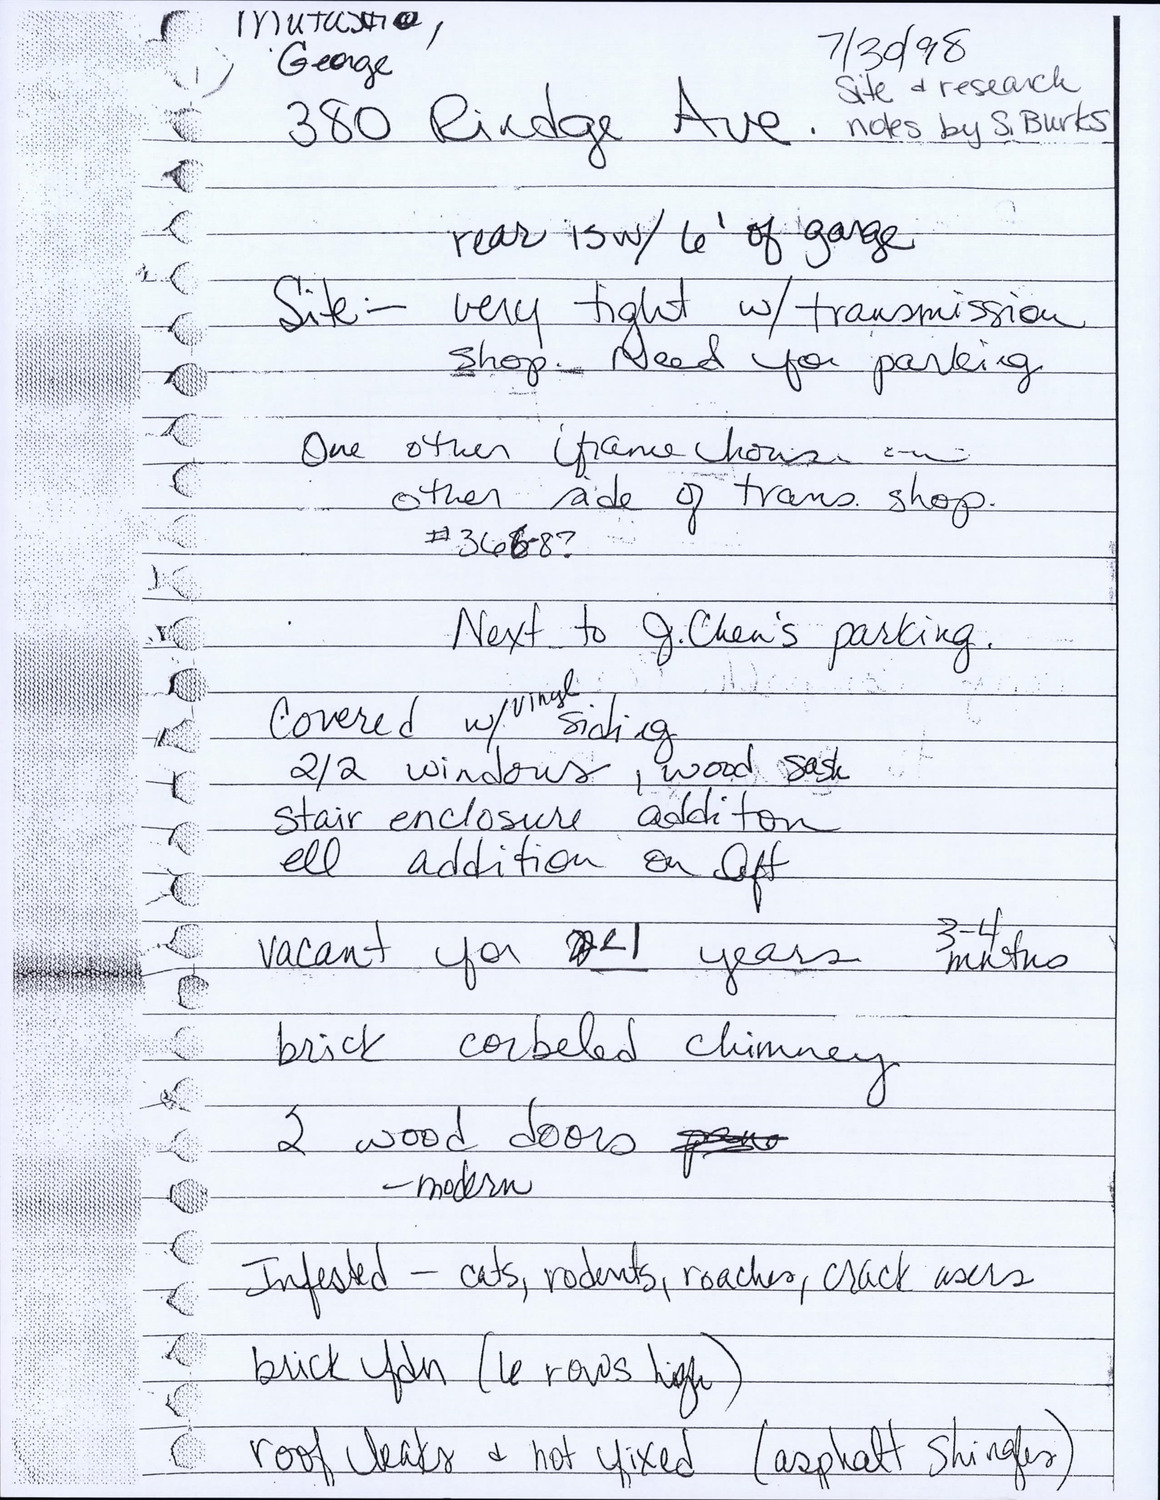 George
7/30/98
Site & research
notes by S. Burks
380 Rindge Ave.
rear is w/ 6' of garage
Site:- very tight w/ transmission
shop. Need for parking
One other frame house on
other side of trans. shop.
#368?
Next to J. Chen's parking.
Covered w/ vinyl siding
2/2 windows, wood sash
stair enclosure additon
ell addition on left
vacant for <1 years 3-4
brick corbeled chimney
2 wood doors
- modern
Infested - cats, rodents, roaches, crack users
brick fdn (6 rows high)
roof leaks & not fixed (asphalt shingles)